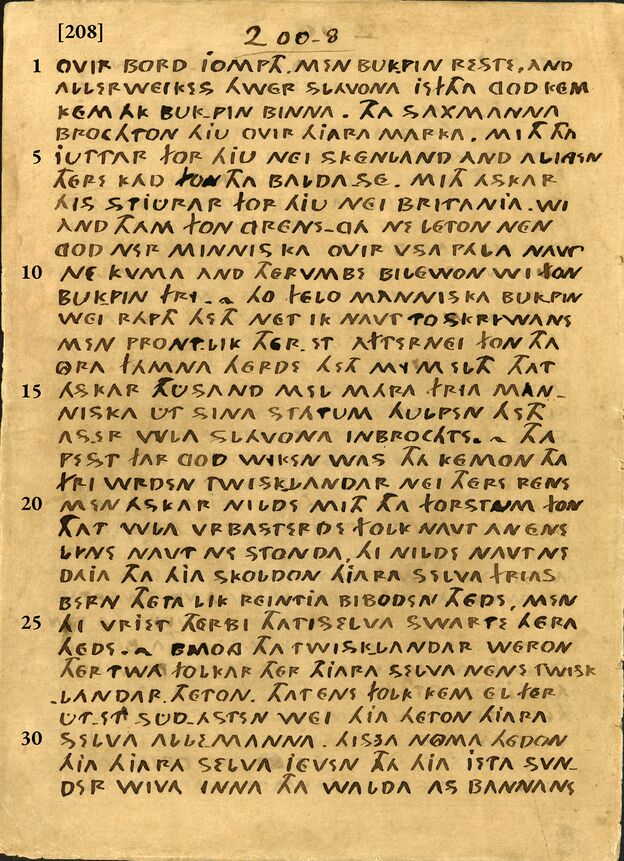 OVIR BORD JOMPTH. MEN BUKPIN RESTE, AND
ALLERWEIKES HWER SLAVONA JEFTHA GOD KEM
KEM AK BUKPIN BINNA. THA SAXMANNA
BROCHTON HJU OVIR HJARA MARKA. MITH THA
JUTTAR FOR HJU NEI SKENLAND AND ALINGEN
THERE KAD FON THA BALDA.SE. MITH ASKAR
HIS STJURAR FOR HJU NEI BRITANJA. WI
AND THAM FON GRENE-GA NE LETON NEN
GOD NER MINNISKA OVIR VSA PALA NAVT
NE KVMA AND THERVMBE BILEWON WI FON
BUKPIN FRI. ~ HO FELO MANNISKA BUKPIN
WEI RAPTH HETH NET IK NAVT TO SKRIWANE
MEN PRONTLIK THER.ST AFTERNEI FON THA
ORA FAMNA HERDE HETH MY MELTH THAT
ASKAR THUSAND MEL MARA FRJA MAN-
NISKA UT SINA STATUM HULPEN HETH
AS.ER WLA SLAVONA INBROCHTE. ~ THA
PEST FAR GOD WIKEN WAS THA KEMON THA
FRI WRDEN TWISKLANDAR NEI THERE RENE
MEN ASKAR NILDE MITH THA FORSTUM FON
THAT WLA VRBASTERDE FOLK NAVT AN ENE
LYNE NAVT NE STONDA. HI NILDE NAVT NE
DAJA THA HJA SKOLDON HJARA SELVA FRJAS
BERN HETA LIK REINTJA BIBODEN HEDE, MEN
HI VRJET THERBI THAT I SELVA SWARTE HERA
HEDE. ~ EMONG THA TWISKLANDAR WERON
THER TWA FOLKAR THER HJARA SELVA NENE TWISK
.LANDAR.HETON. THAT ENE FOLK KEM EL FER
UT.ET SUD-ASTEN WEI HJA HETON HJARA
SELVA ALLEMANNA. HISSA NOMA HEDON
HJA HJARA SELVA JEVEN THA HJA JETA SVN-
DER WIVA INNA THA WALDA AS BANNANE
[208]
200-8
1
5
10
15
20
25
30